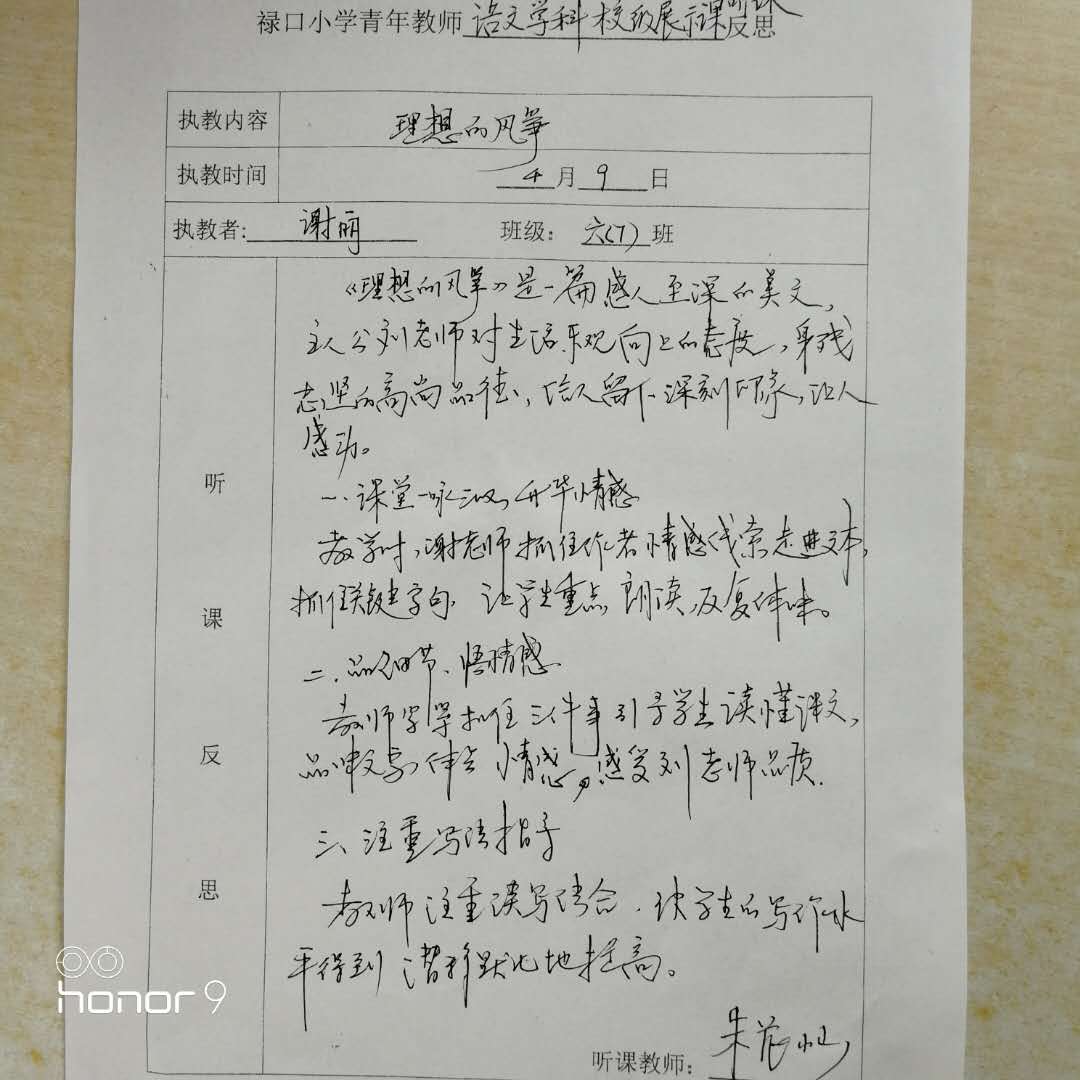 禄口小学青年教师 语文学科 校级展示课听课反思
执教内容 理想的风筝
执教时间 4月9日
执教者: 谢丽 班级: 六(7)班
听课反思
《理想的风筝》是一篇感人至深的美文,
主人公刘老师对生活乐观向上的态度,身残
志坚的高尚品德,给人留下深刻印象,让人
感动。
一、课堂一咏三叹,升华情感
教学时,谢老师抓住作者情感线索走进文本,
抓住关键字句,让学生重点朗读,反复体味。
二、品细节、悟情感
教师牢牢抓住三件事引导学生读懂课文,
品味文字,体会情感,感受刘老师品质.
三、注重写法指导
教师注重读写结合,使学生的写作水
平得到潜移默化地提高。
听课教师: 朱
honor 9